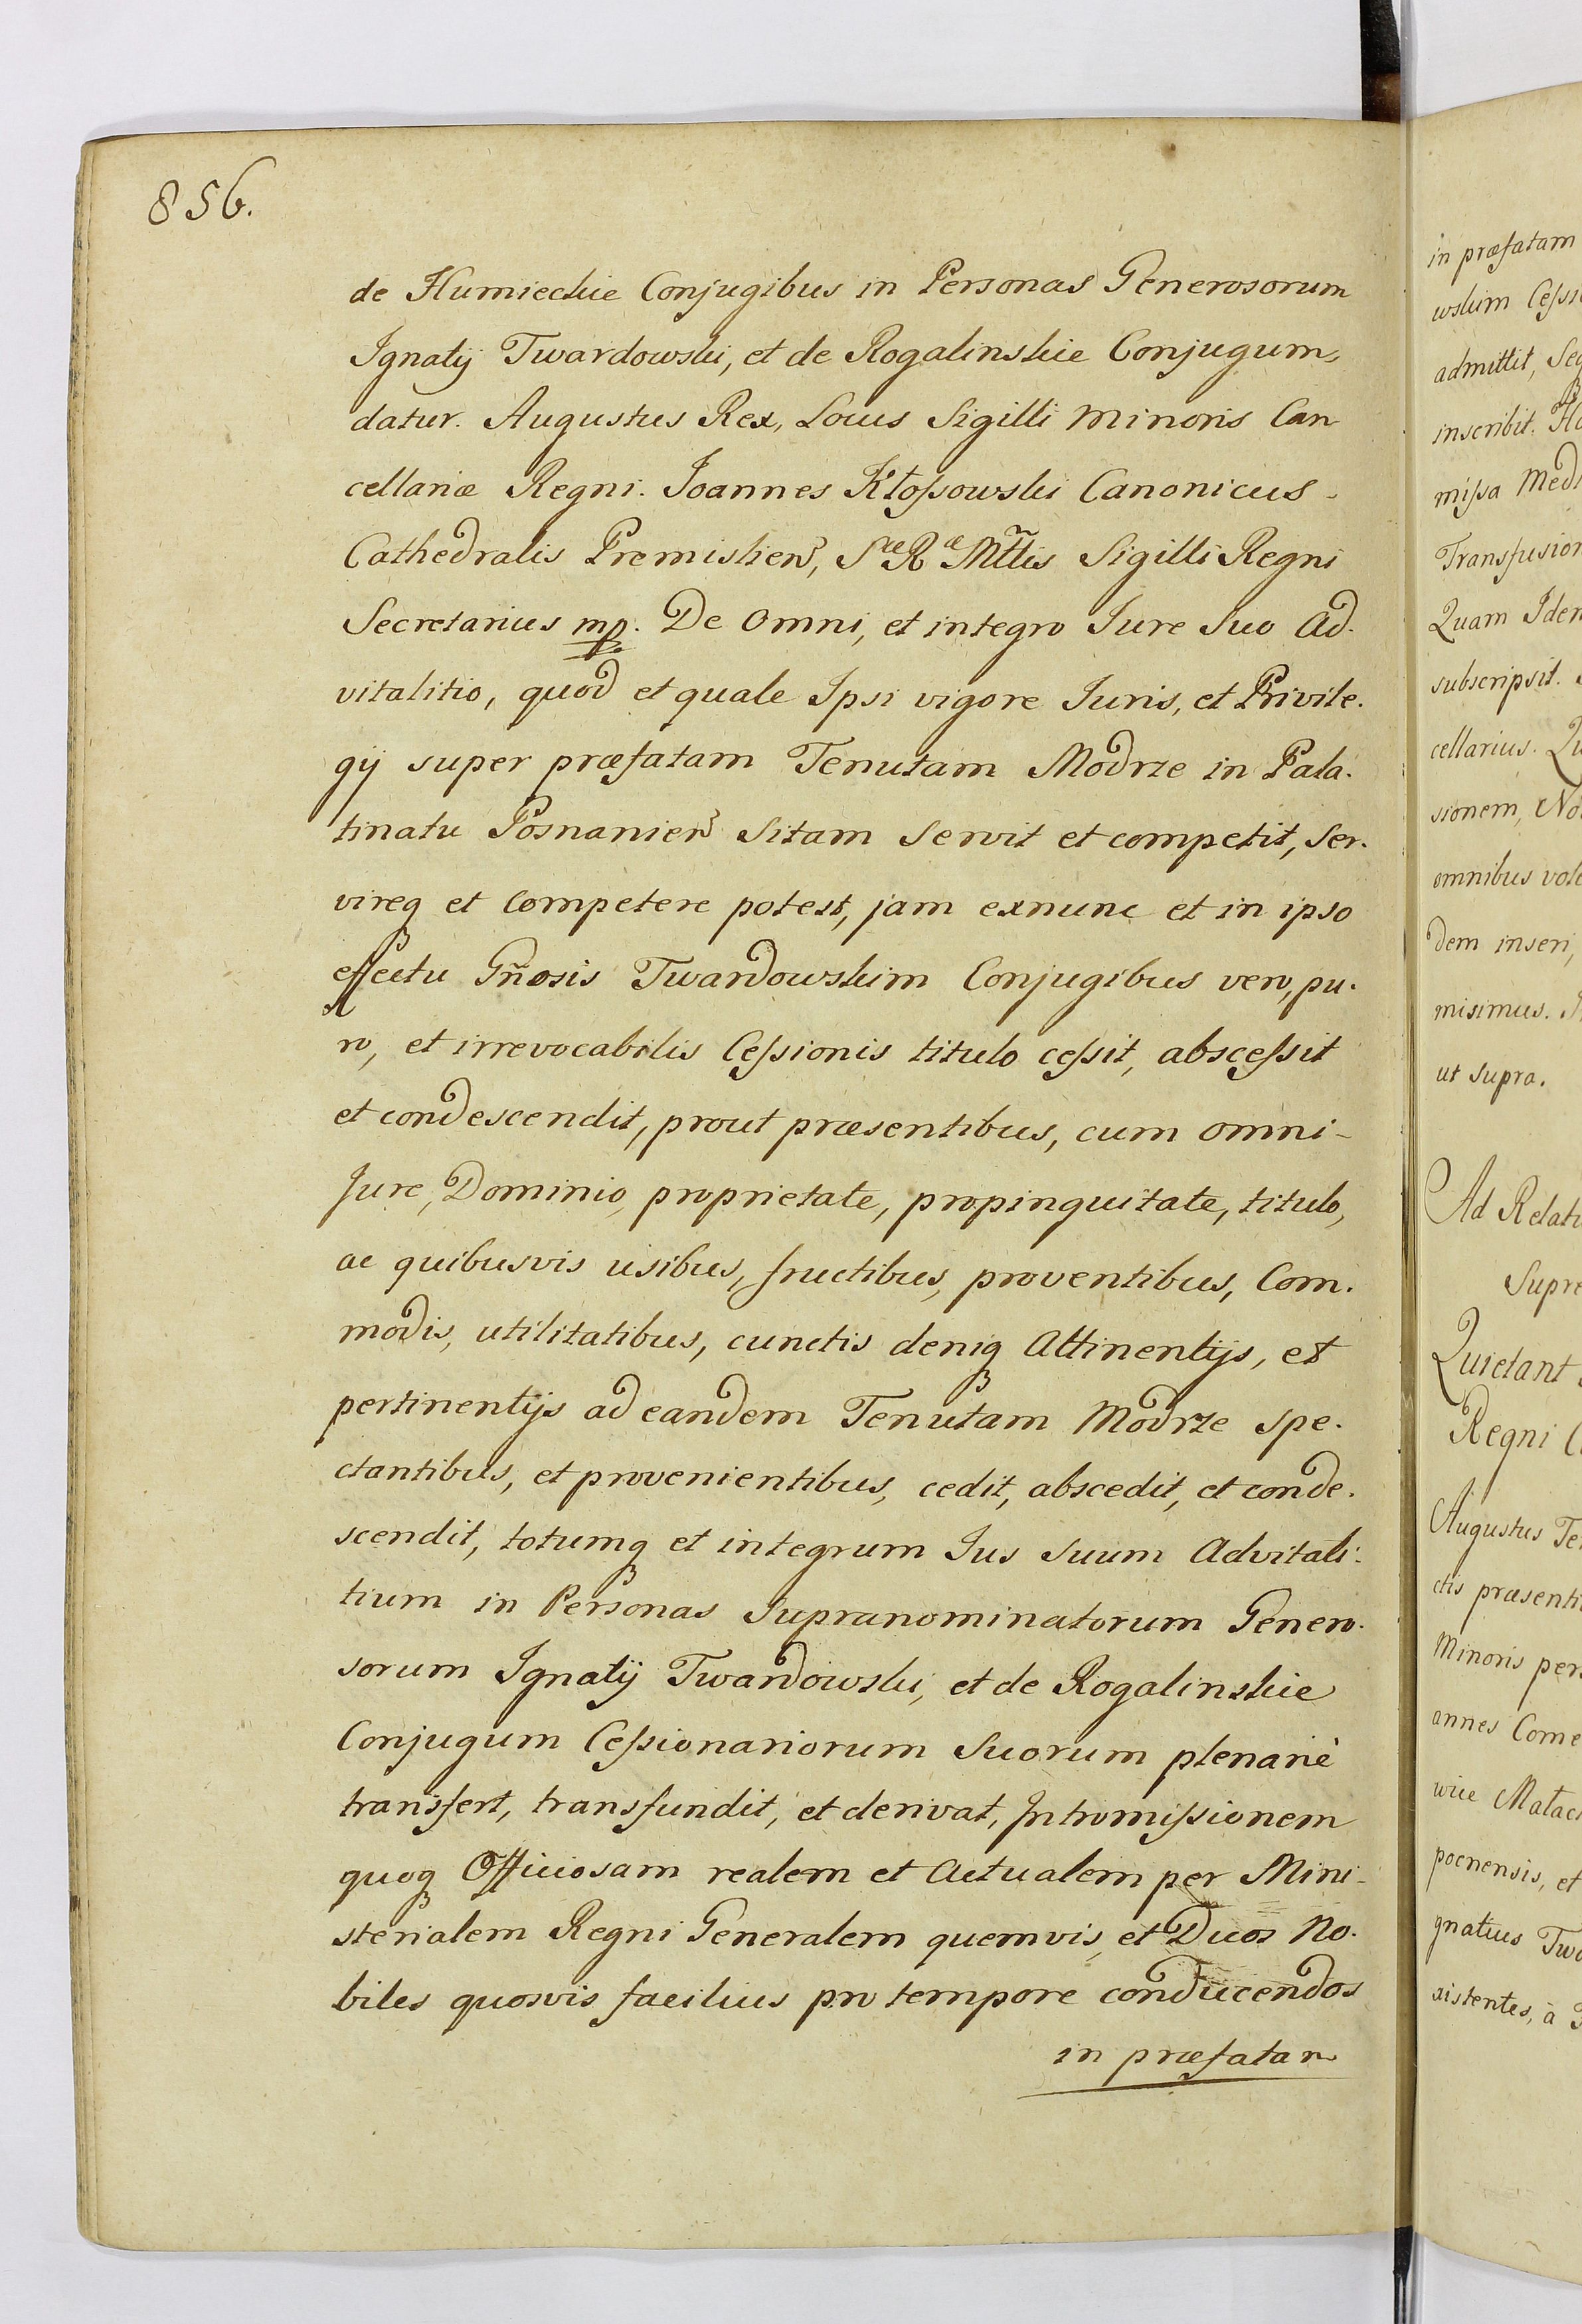 856.
de Humieckie Conjugibus in Personas Generosorum
Ignatij Twardowski, et de Rogalinskie Conjugum,
datur. Augustus Rex, Locus Sigilli Minoris Can
cellariæ Regni. Joannes Kłoſsowski Canonicus -
Cathedralis Premislien̄, Sæ Ræ Mttis Sigilli Regni
Secretarius mp. De Omni, et integro Jure Suo Ad.
vitalitio, quod et quale Ipsi vigore Juris, et Privile.
gij super præfatam Tenutam Modrze in Pala.
tinatu Posnanien̄ Sitam Servit et competit, Ser.
vireq et Competere potest, jam exnunc et in ipso
effectu Gñosis Twardowskim Conjugibus vero, pu.
ro, et irrevocabilis Ceſsionis titulo ceſsit, absceſsit
et condescendit, prout præsentibus, cum omni -
Jure, Dominio, proprietate, propinquitate, titulo,
ac quibusvis usibus, fructibus, proventibus, Com.
modis, utilitatibus, cunctis deniq Attinentijs, et
pertinentijs ad eandem Tenutam Modrze spe.
ctantibus, et provenientibus, cedit, abscedit, et conde.
scendit, totumq et integrum Jus Suum Advitali.
tium in Personas Supranominatorum Genero.
sorum Ignatij Twardowski, et de Rogalinskie
Conjugum Ceſsionariorum Suorum plenariè
transfert, transfundit, et derivat, Intromiſsionem
quoq Officiosam realem et Actualem per Mini -
sterialem Regni Generalem quemvis, et Duos No.
biles quosvis facilius pro tempore conducendos
in præfatam
in præfatam
wskim Ceſsi
admittit, Seq
inscribit. Ho
miſsa Medi
Transfusion
Quam Idem
subscripsit.
cellarius. Qu
sionem, No
omnibus vole
dem inseri,
misimus.
ut supra.
Ad Relati
Supre
Quietant
Regni C
Augustus Te
ctis præsenti
Minoris per
annes Come
wice Małac
pocnensis, et
gnatius Two
xistentes, à